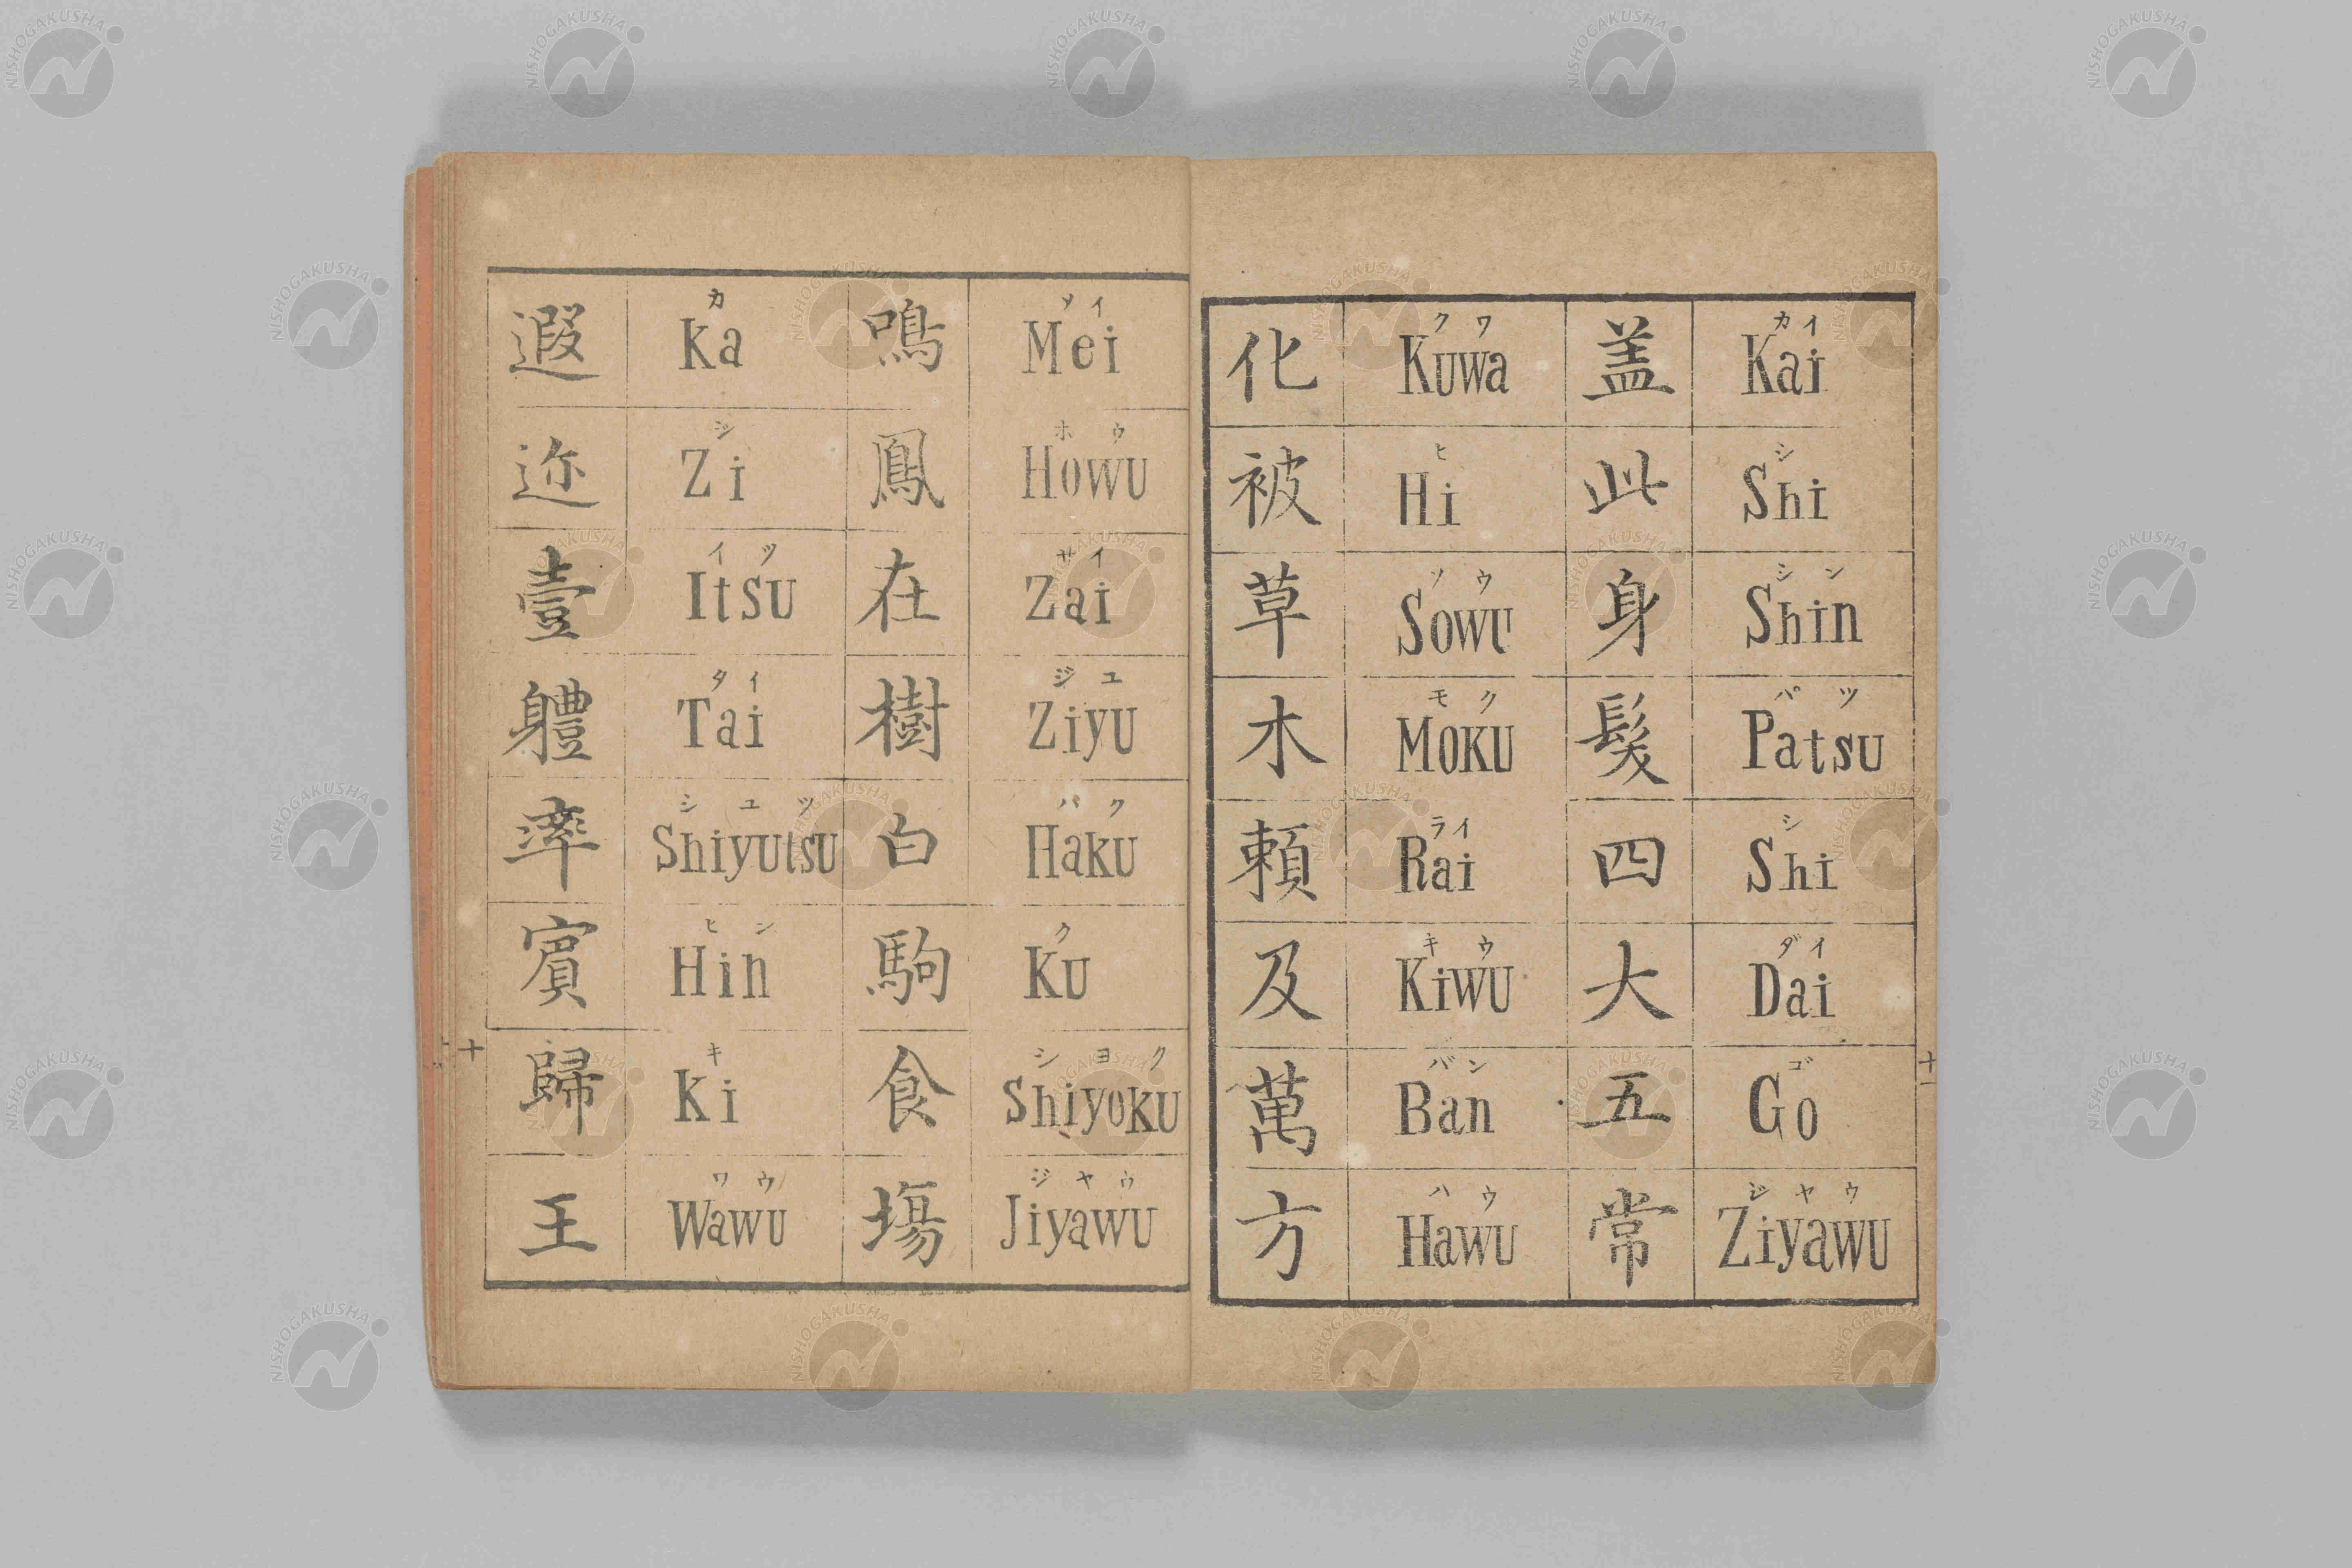 遐 迩 壹 軆 率 賓 歸 王
カ
Ka
ジ
Zi
イツ
Itsu
タイ
Tai
シユツ
Shiyutsu
ヒン
Hin
キ
Ki
ワウ
Wawu
鳴 鳳 在 樹 白 駒 食 塲
メイ
Mei
ホウ
Howu
ザイ
Zai
ジユ
Ziyu
ハク
Haku
ク
Ku
シヨク
Shiyoku
ジヤウ
Jiyawu
十
化 被 草 木 頼 及 萬 方
クワ
Kuwa
ヒ
Hi
ソウ
Sowu
モク
Moku
ライ
Rai
キウ
Kiwu
バン
Ban
ハウ
Hawu
盖 此 身 髪 四 大 五 常
カイ
Kai
シ
Shi
シン
Shin
パツ
Patsu
シ
Shi
ダイ
Dai
ゴ
Go
ジヤウ
Ziyawu
十一
NISHOGAKUSHA